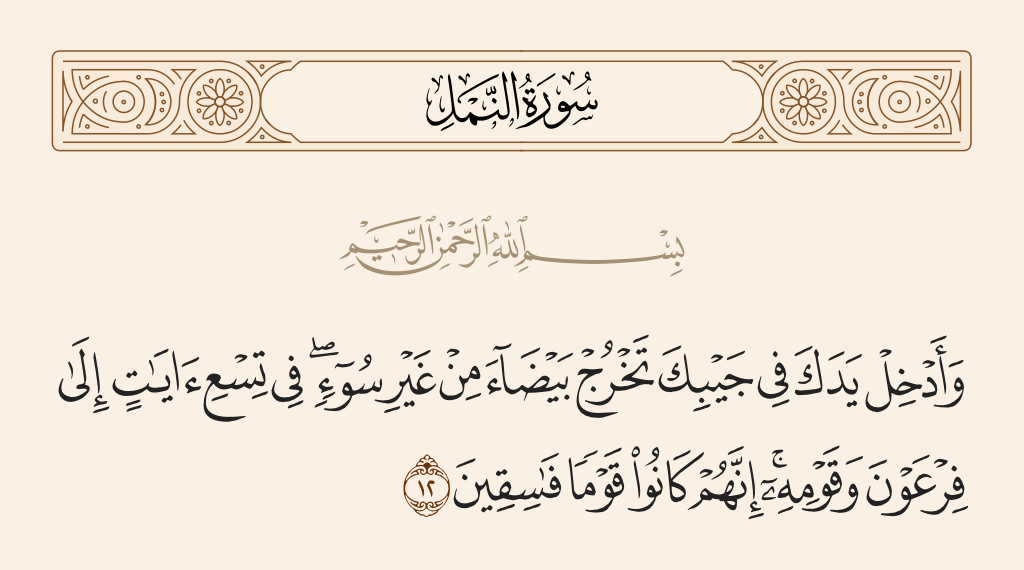 سُورَةُ النَّمْلِ
بِسْمِ ٱللَّهِ ٱلرَّحْمَٰنِ ٱلرَّحِيمِ
وَأَدْخِلْ يَدَكَ فِى جَيْبِكَ تَخْرُجْ بَيْضَآءَ مِنْ غَيْرِ سُوٓءٍۢ ۖ فِى تِسْعِ ءَايَٰتٍ إِلَىٰ
فِرْعَوْنَ وَقَوْمِهِۦٓ ۚ إِنَّهُمْ كَانُوا۟ قَوْمًۭا فَٰسِقِينَ ١٢